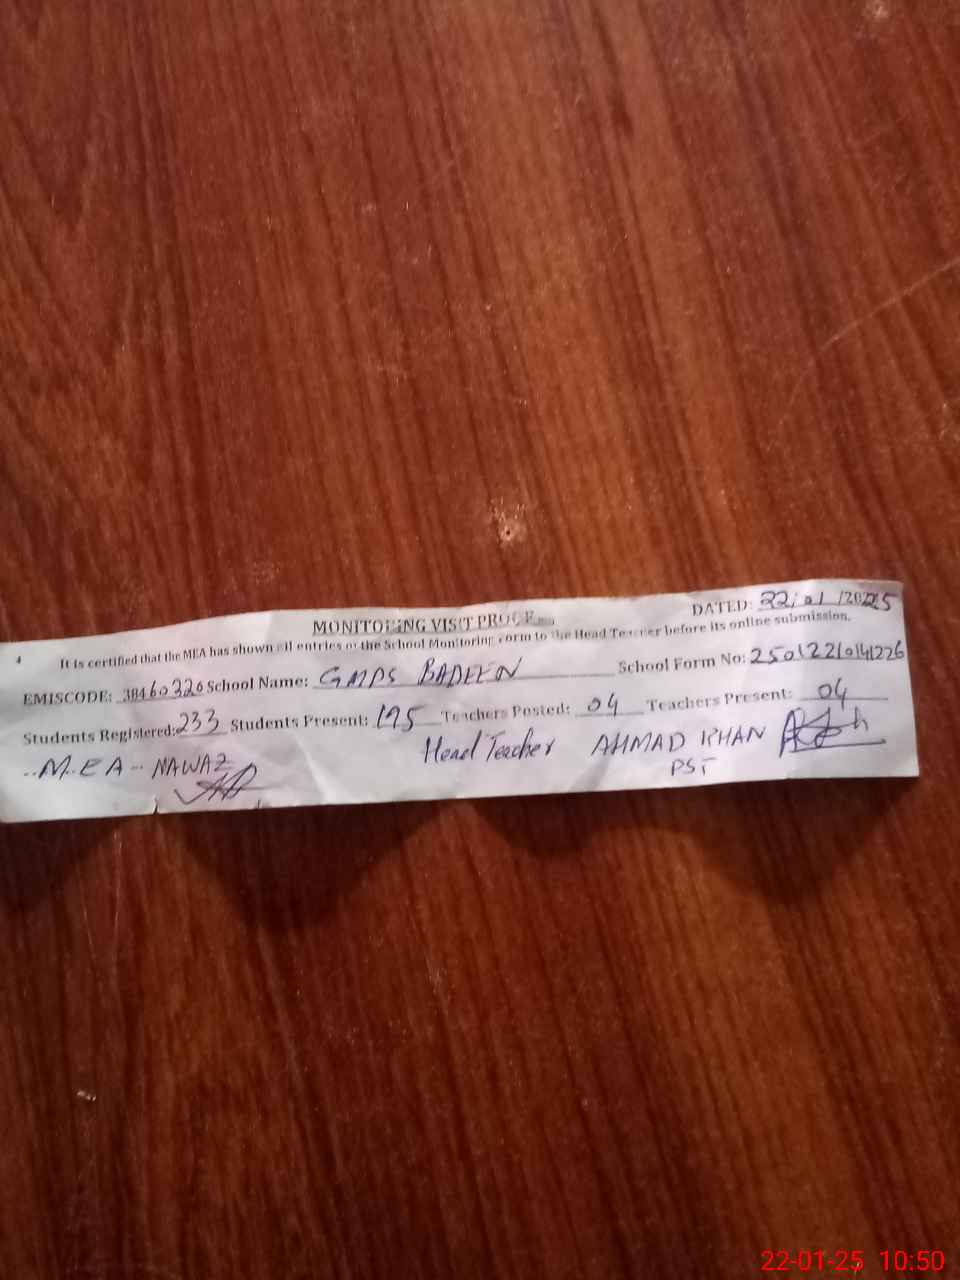 MONITORING VISIT PROOF
DATED: 22/01/2025
4 It is certified that the MEA has shown all entries of the School Monitoring Form to the Head Teacher before its online submission.
EMISCODE: 38460320 School Name: GMPS BADEEN School Form No: 25012210141226
Students Registered: 233 Students Present: 195 Teachers Posted: 04 Teachers Present: 04
M.E A NAWAZ Head Teacher AHMAD KHAN
PST
22-01-25 10:50